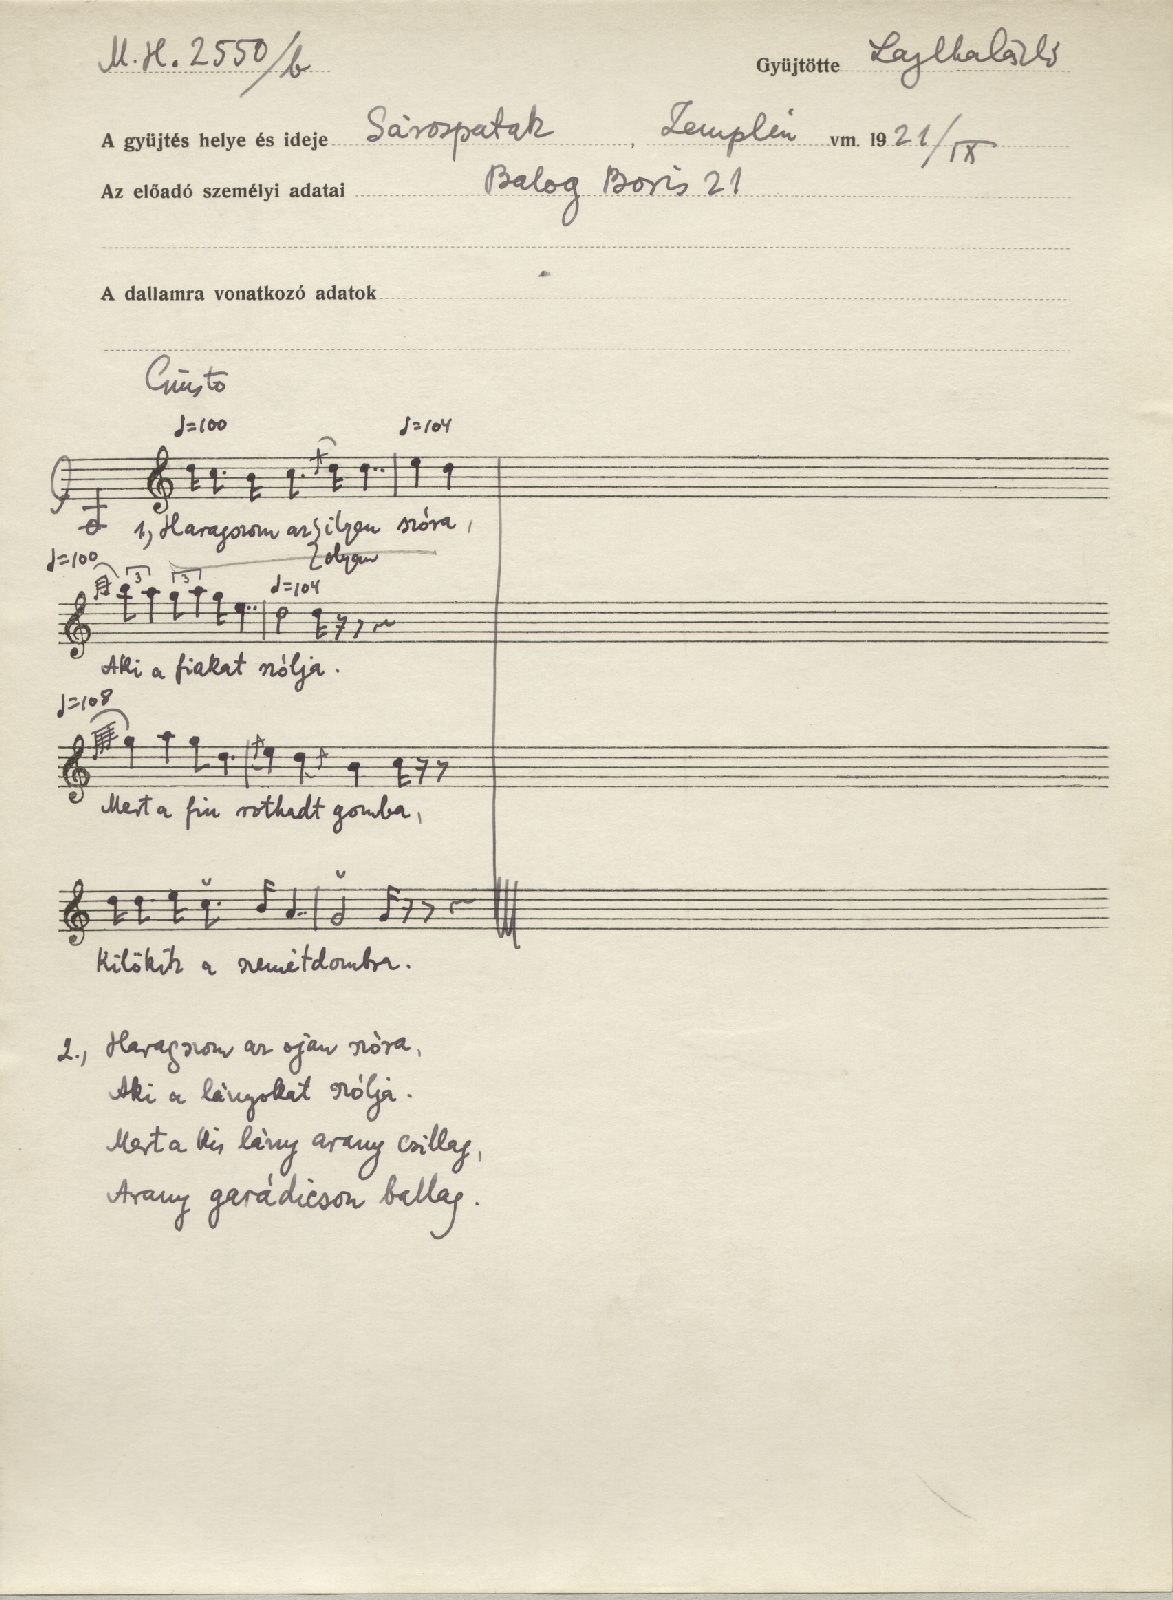 M.H. 2550/b
Gyüjtötte Lajtha László
A gyüjtés helye és ideje Sárospatak, Zemplén vm. 1921/IX
Az előadó személyi adatai Balog Boris 21
A dallamra vonatkozó adatok
Giusto
♩=100 ♩=104
1, Haragszom az ilyen szóra,
olyan
♩=100 3 3 ♩=104
Aki a fiakat szólja.
♩=108
Mert a fiu rothadt gomba,
Kilökik a szemétdombra.
2., Haragszom az ojan szóra,
Aki a lányokat szólja.
Mert a kis lány arany csillag,
Arany garádicson ballag.